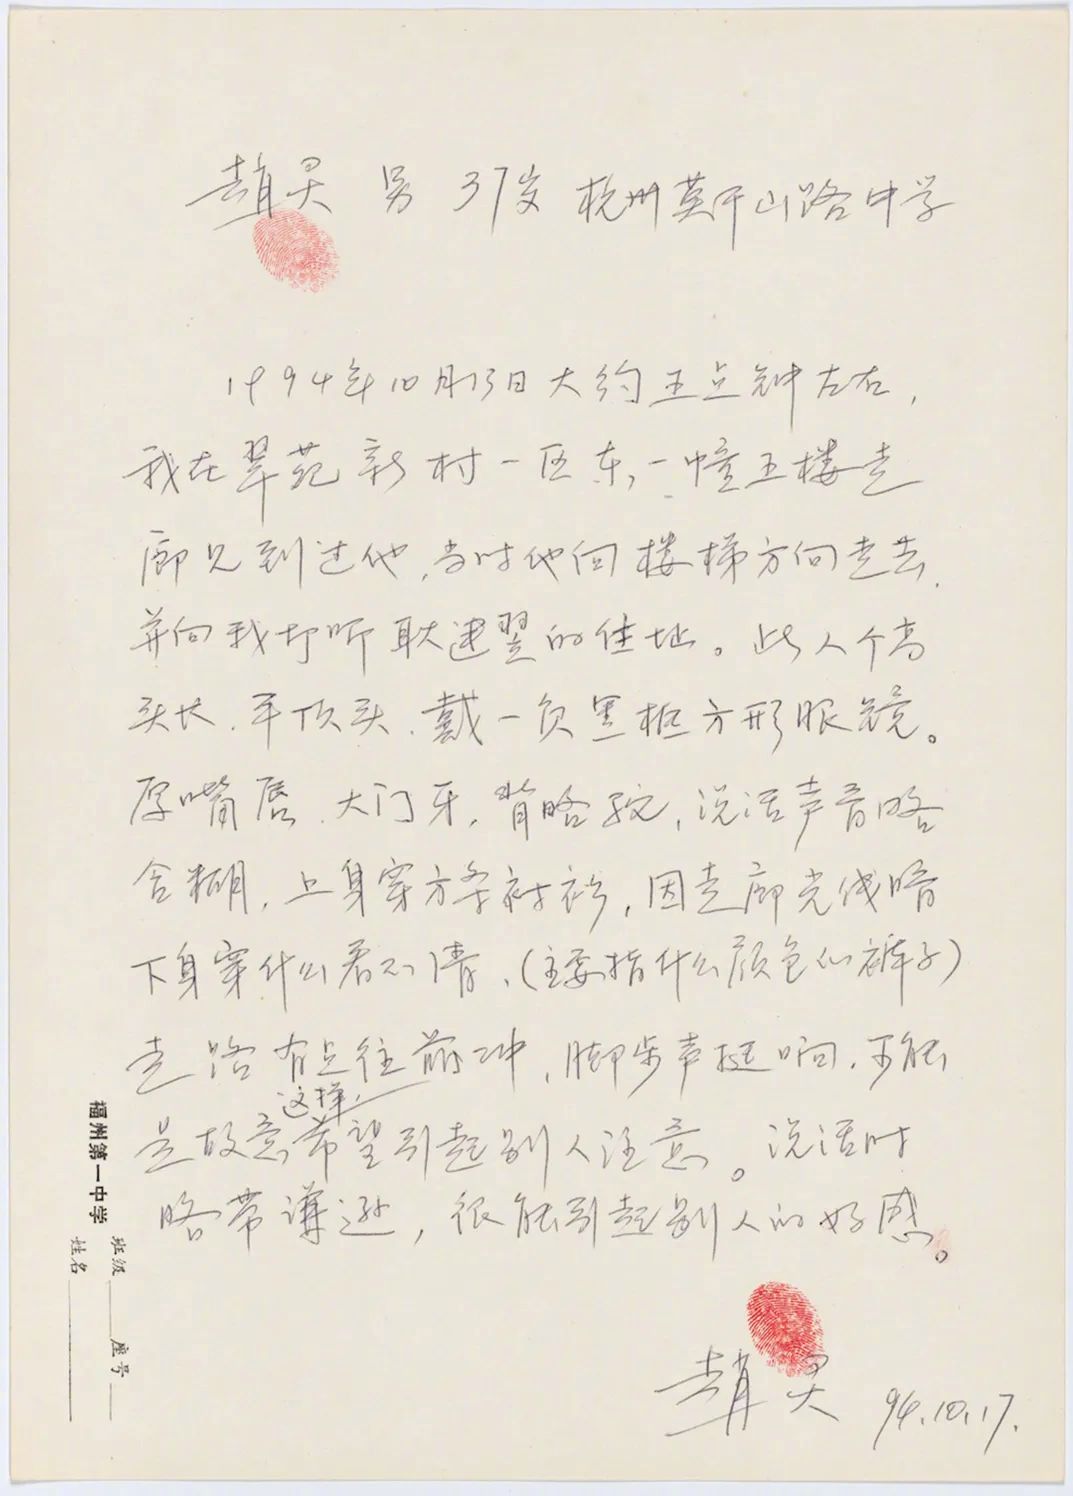 赵灵 男 37岁 杭州莫干山路中学
1994年10月13日大约五点钟左右，
我在翠苑新村一区东，一幢五楼走
廊见到过他，当时他向楼梯方向走去，
并向我打听耿建翌的住址。此人个高
头长，平顶头，戴一负黑框方形眼镜。
厚嘴唇，大门牙，背略驼，说话声音略
含糊，上身穿方条衬衫，因走廊光线暗
下身穿什么看不清，(主要指什么颜色的裤子)
走路有点往前冲，脚步声挺响，可能
是故意这样，希望引起别人注意。说话时
略带谦逊，很能引起别人的好感。
赵灵 94.10.17.
福州第一中学 班级 座号
姓名